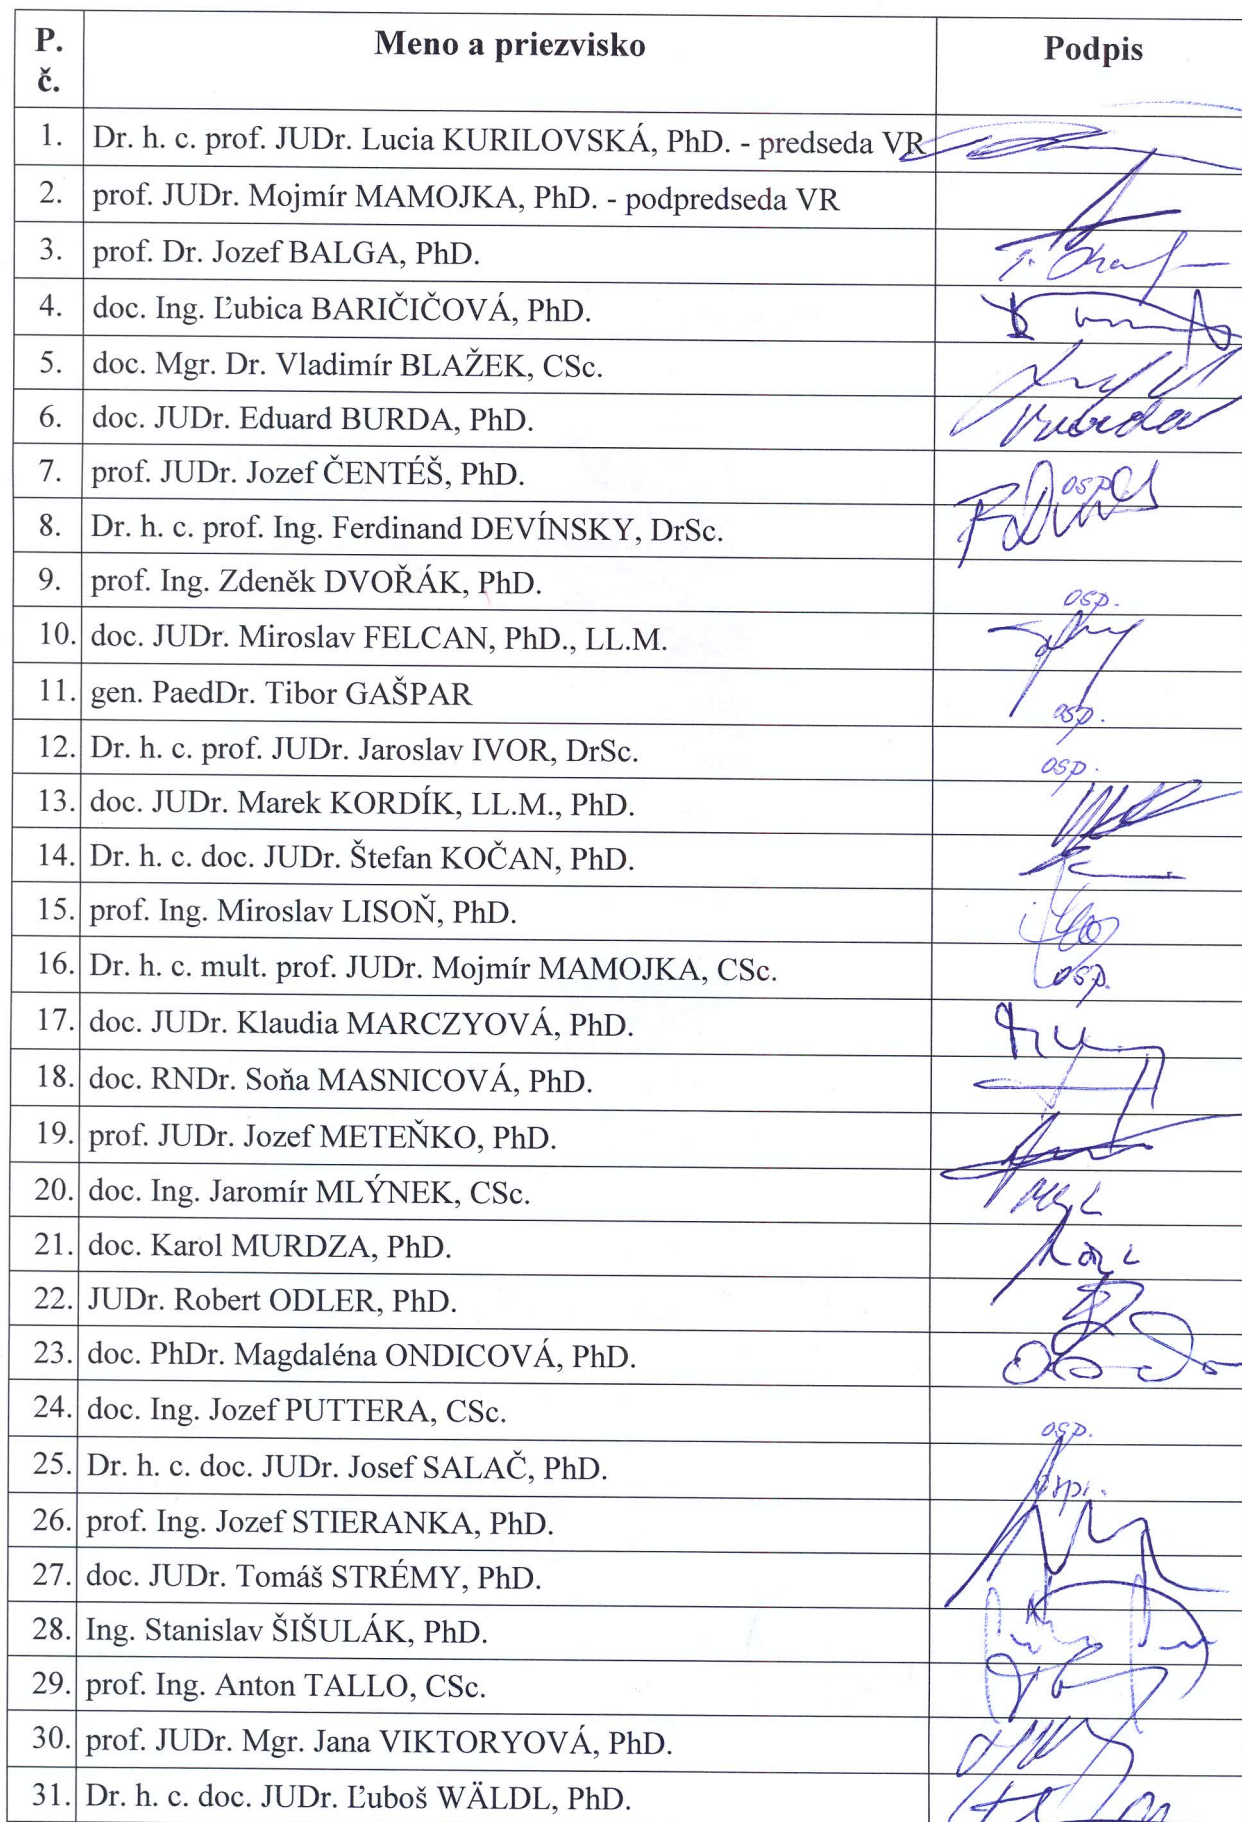 P. č. Meno a priezvisko Podpis
1. Dr. h. c. prof. JUDr. Lucia KURILOVSKÁ, PhD. - predseda VR
2. prof. JUDr. Mojmír MAMOJKA, PhD. - podpredseda VR
3. prof. Dr. Jozef BALGA, PhD.
4. doc. Ing. Ľubica BARIČIČOVÁ, PhD.
5. doc. Mgr. Dr. Vladimír BLAŽEK, CSc.
6. doc. JUDr. Eduard BURDA, PhD.
7. prof. JUDr. Jozef ČENTÉŠ, PhD. osp
8. Dr. h. c. prof. Ing. Ferdinand DEVÍNSKY, DrSc.
9. prof. Ing. Zdeněk DVOŘÁK, PhD. osp.
10. doc. JUDr. Miroslav FELCAN, PhD., LL.M.
11. gen. PaedDr. Tibor GAŠPAR osp.
12. Dr. h. c. prof. JUDr. Jaroslav IVOR, DrSc. osp.
13. doc. JUDr. Marek KORDÍK, LL.M., PhD.
14. Dr. h. c. doc. JUDr. Štefan KOČAN, PhD.
15. prof. Ing. Miroslav LISOŇ, PhD.
16. Dr. h. c. mult. prof. JUDr. Mojmír MAMOJKA, CSc. osp.
17. doc. JUDr. Klaudia MARCZYOVÁ, PhD.
18. doc. RNDr. Soňa MASNICOVÁ, PhD.
19. prof. JUDr. Jozef METEŇKO, PhD.
20. doc. Ing. Jaromír MLÝNEK, CSc.
21. doc. Karol MURDZA, PhD.
22. JUDr. Robert ODLER, PhD.
23. doc. PhDr. Magdaléna ONDICOVÁ, PhD.
24. doc. Ing. Jozef PUTTERA, CSc. osp.
25. Dr. h. c. doc. JUDr. Josef SALAČ, PhD. osp.
26. prof. Ing. Jozef STIERANKA, PhD.
27. doc. JUDr. Tomáš STRÉMY, PhD.
28. Ing. Stanislav ŠIŠULÁK, PhD.
29. prof. Ing. Anton TALLO, CSc.
30. prof. JUDr. Mgr. Jana VIKTORYOVÁ, PhD.
31. Dr. h. c. doc. JUDr. Ľuboš WÄLDL, PhD.